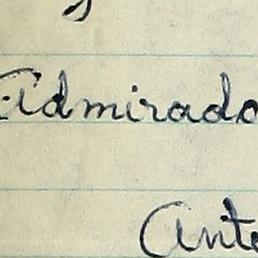 Admirado
Ante